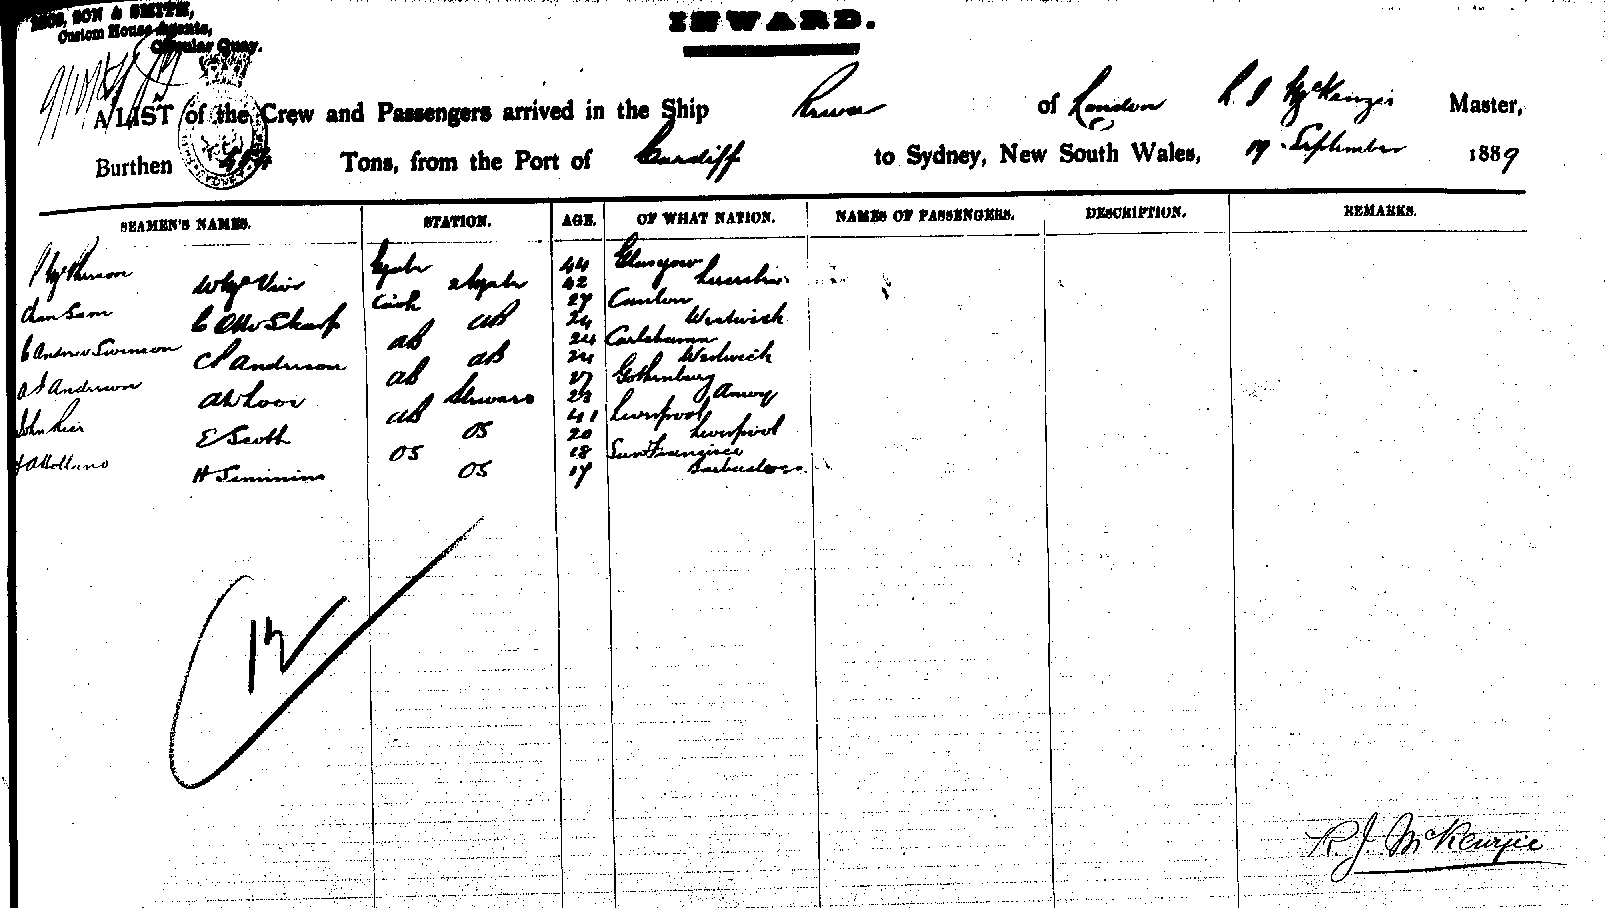 SON & SMITH,
Custom House Agents,
Circular Quay.
INWARD.
A LIST of the Crew and Passengers arrived in the Ship Rewa of London R. J McKenzie Master,
Burthen Tons, from the Port of Cardiff to Sydney, New South Wales, 19 September 1889
SEAMEN'S NAMES. STATION. AGE. OF WHAT NATION. NAMES OF PASSENGERS. DESCRIPTION. REMARKS.
P McPherson 44 Glasgow
42
Chan Sam Cook 27 Canton
C Otto Sharp AB 24
C Andrew Swenson AB 24 Carlshamn
C P Anderson AB 24
A S Anderson AB 27 Gothenburg
Ah Looi Steward 23 Amoy
John AB 41 Liverpool
E Scott OS 20 Liverpool
Holland OS 18 San Francisco
H Simmins OS 17 Barbados
12
R. J. McKenzie